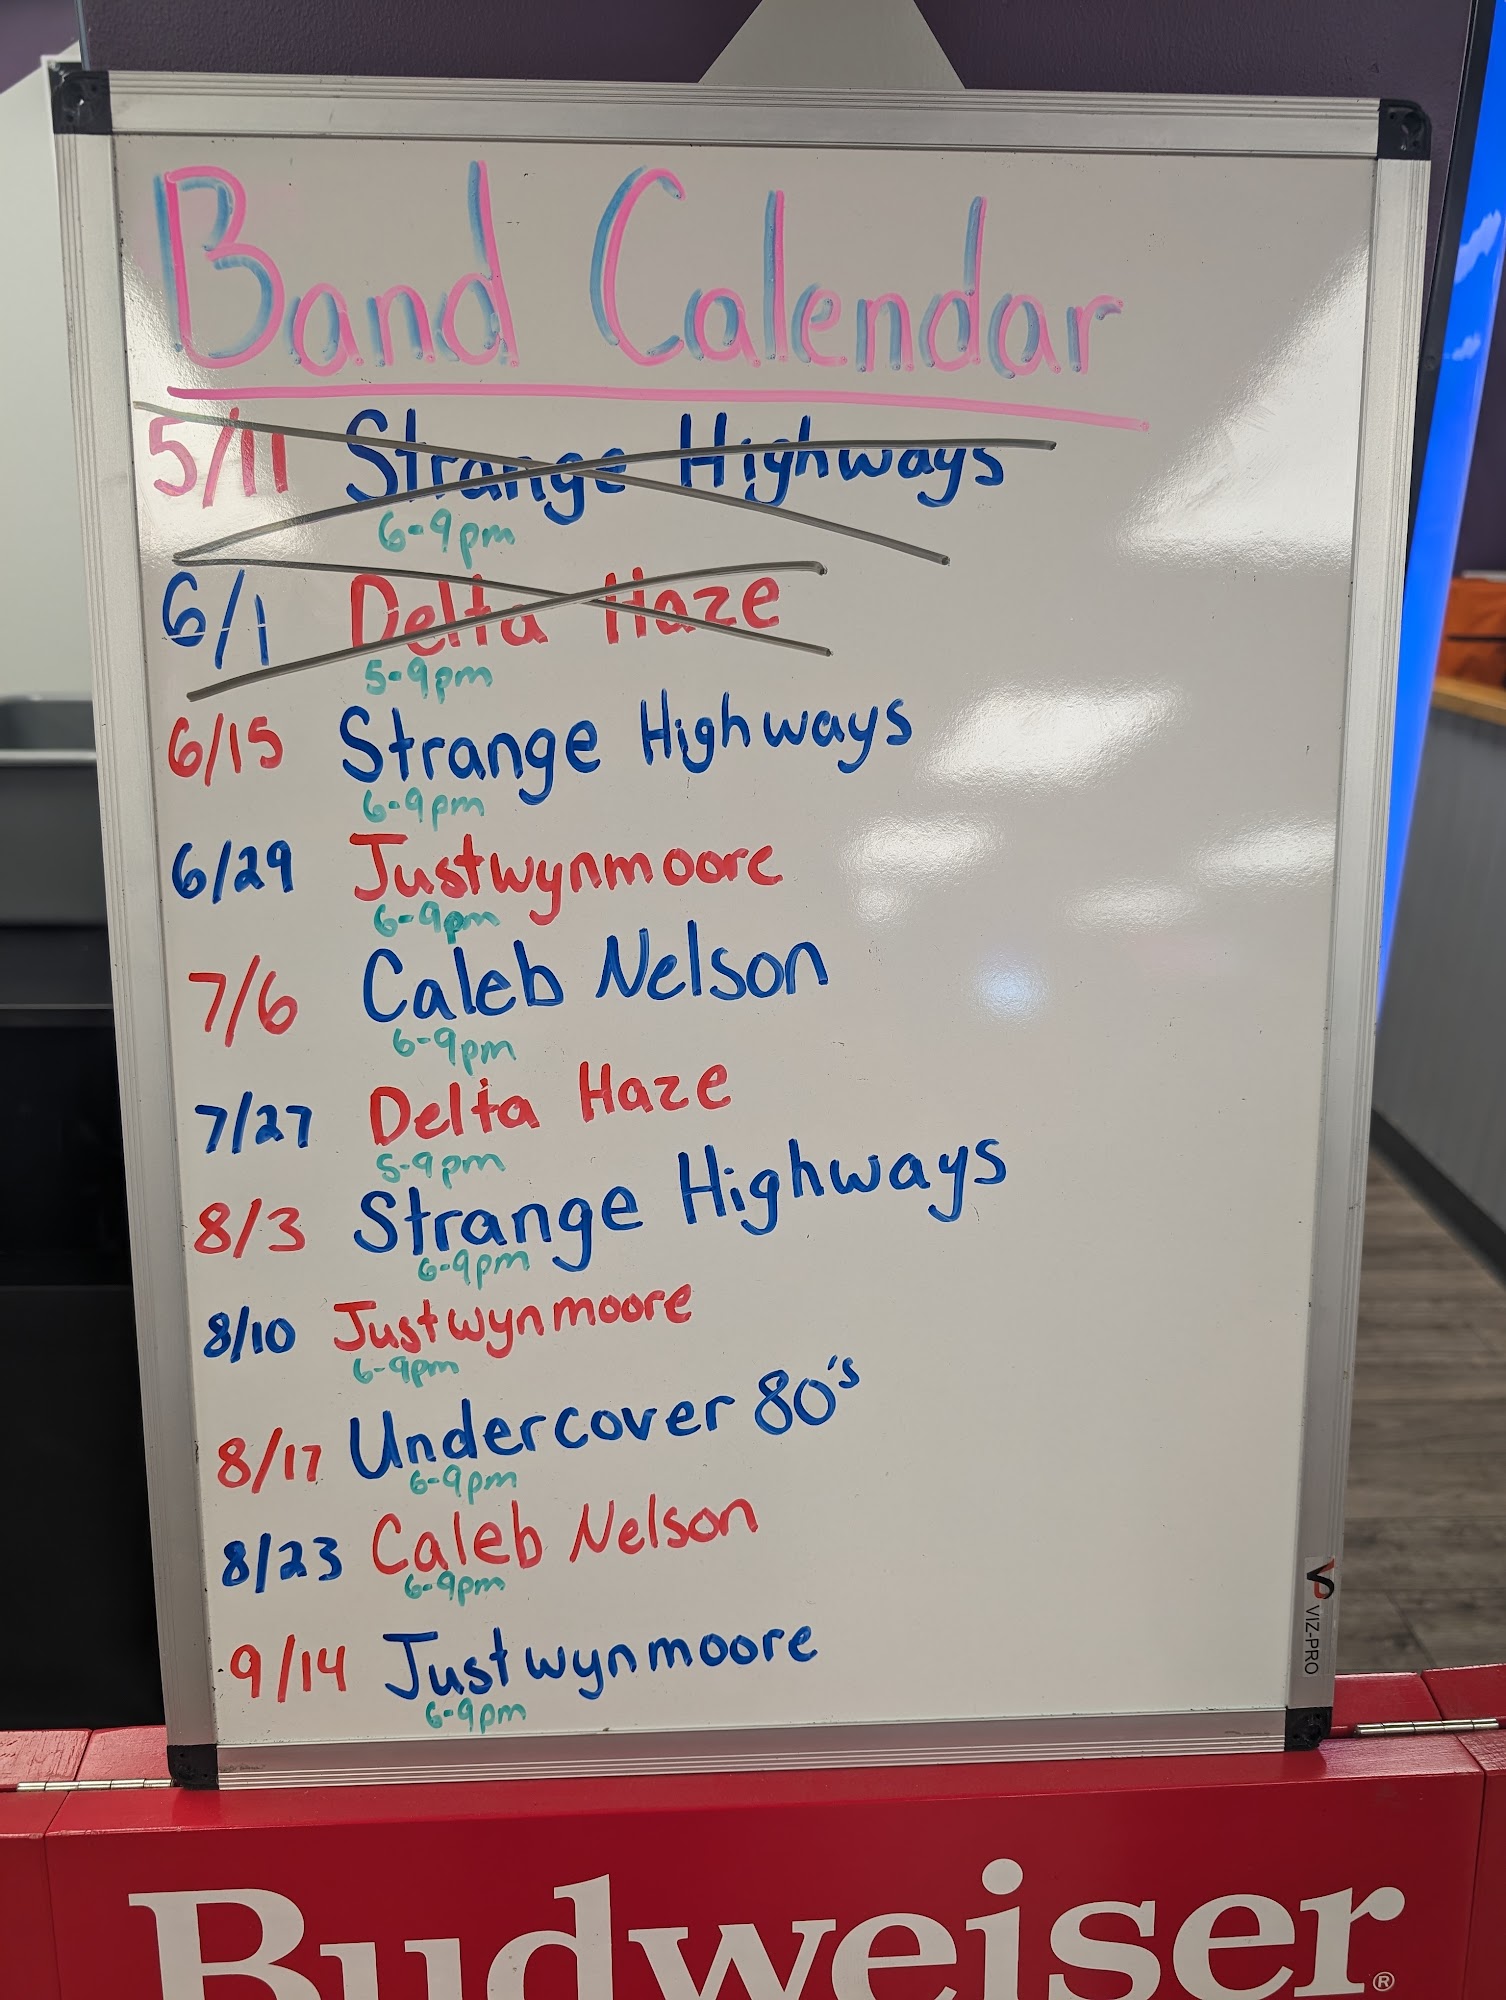 Band Calendar
5/11 Strange Highways
6-9pm
6/1 Delta Haze
5-9pm
6/15 Strange Highways
6-9pm
6/29 Justwynmoore
6-9pm
7/6 Caleb Nelson
6-9pm
7/27 Delta Haze
5-9pm
8/3 Strange Highways
6-9pm
8/10 Justwynmoore
6-9pm
8/17 Undercover 80's
6-9pm
8/23 Caleb Nelson
6-9pm
9/14 Justwynmoore
6-9pm
VIZ-PRO
Budweiser®